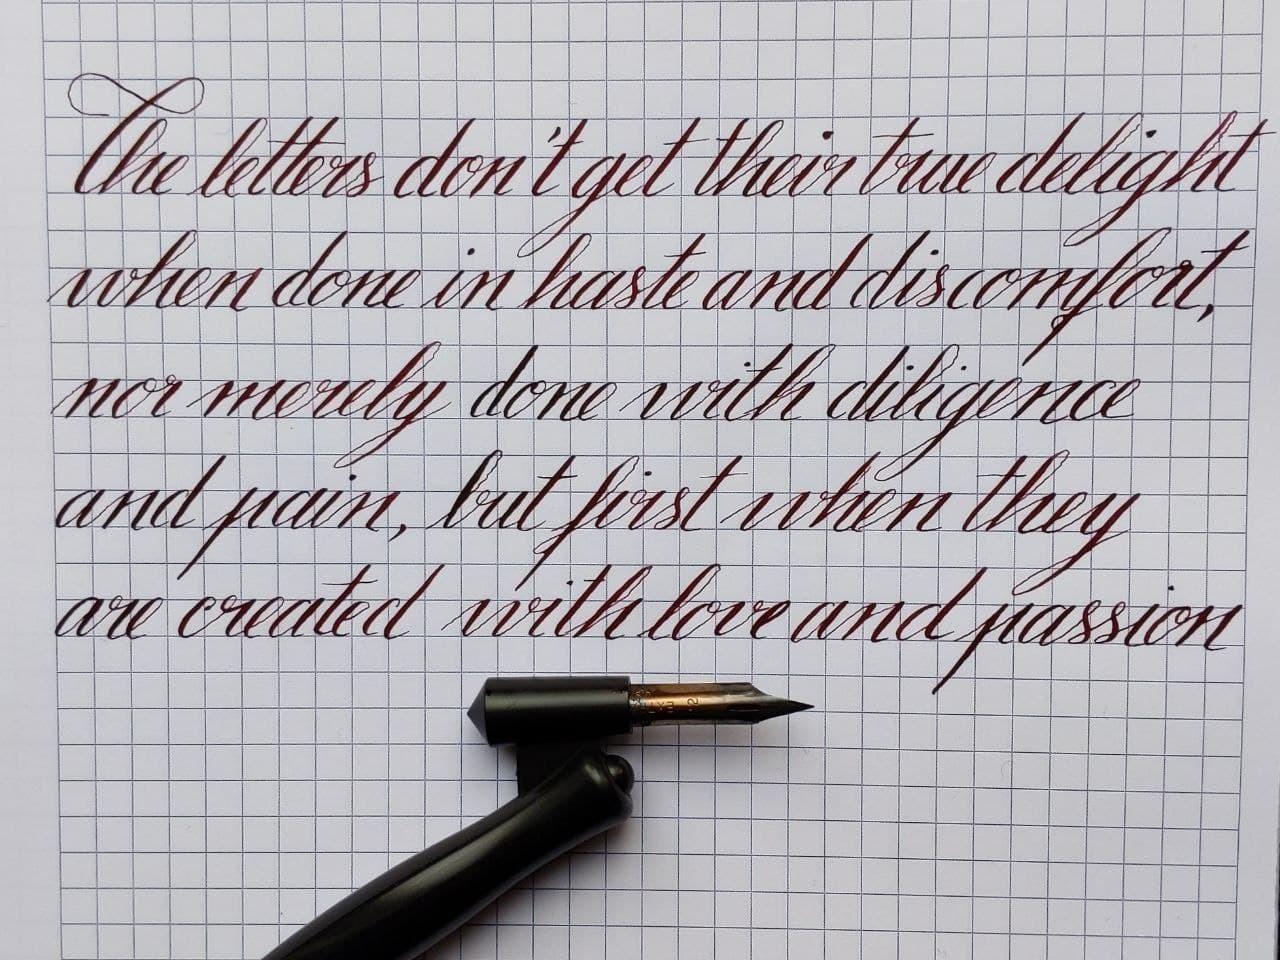 The letters don't get their true delight
when done in haste and discomfort,
nor merely done with diligence
and pain, but first when they
are created with love and passion